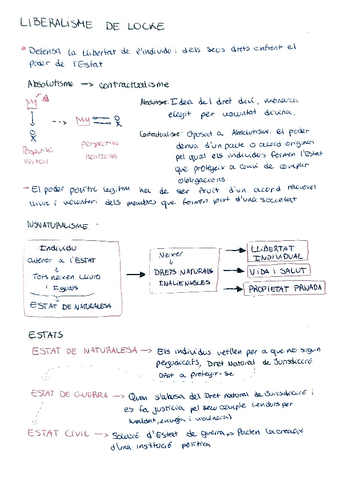 LIBERALISME DE LOCKE
• Defensa la Llibertat de l'individu i dels seus drets enfront el
poder de l'Estat
Absolutisme → contractualisme
Absolutisme: Idea del dret diví, monarca
elegit per voluntat divina.
Perspectiva
Vertical
Perspectiva
Horitzontal
Contractualisme: Oposat a Absolutisme. El poder
deriva d'un pacte o acord original
pel qual els individus formen l'Estat
que protegeix a canvi de complir
obligacions.
- El poder polític legítim ha de ser fruit d'un acord racional
lliure i voluntari dels membres que formen part d'una societat
IUSNATURALISME:
Individu
anterior a l'ESTAT
Tots neixen lliures
i iguals
ESTAT DE NATURALESA
Neixer
DRETS NATURALS
INALIENABLES
LLIBERTAT
INDIVIDUAL
VIDA I SALUT
PROPIETAT PRIVADA
ESTATS
ESTAT DE NATURALESA → Els individus vetllen per a que no siguin
perjudicats, Dret Natural de Jurisdicció
Dret a protegir-se
ESTAT DE GUERRA → Quan s'abusa del Dret natural de Jurisdicció i
es fa justícia pel seu compte (enduts per
maldat, enveja i violència)
ESTAT CIVIL → Solució d'Estat de guerra, → Pacten la creació
d'una institució política